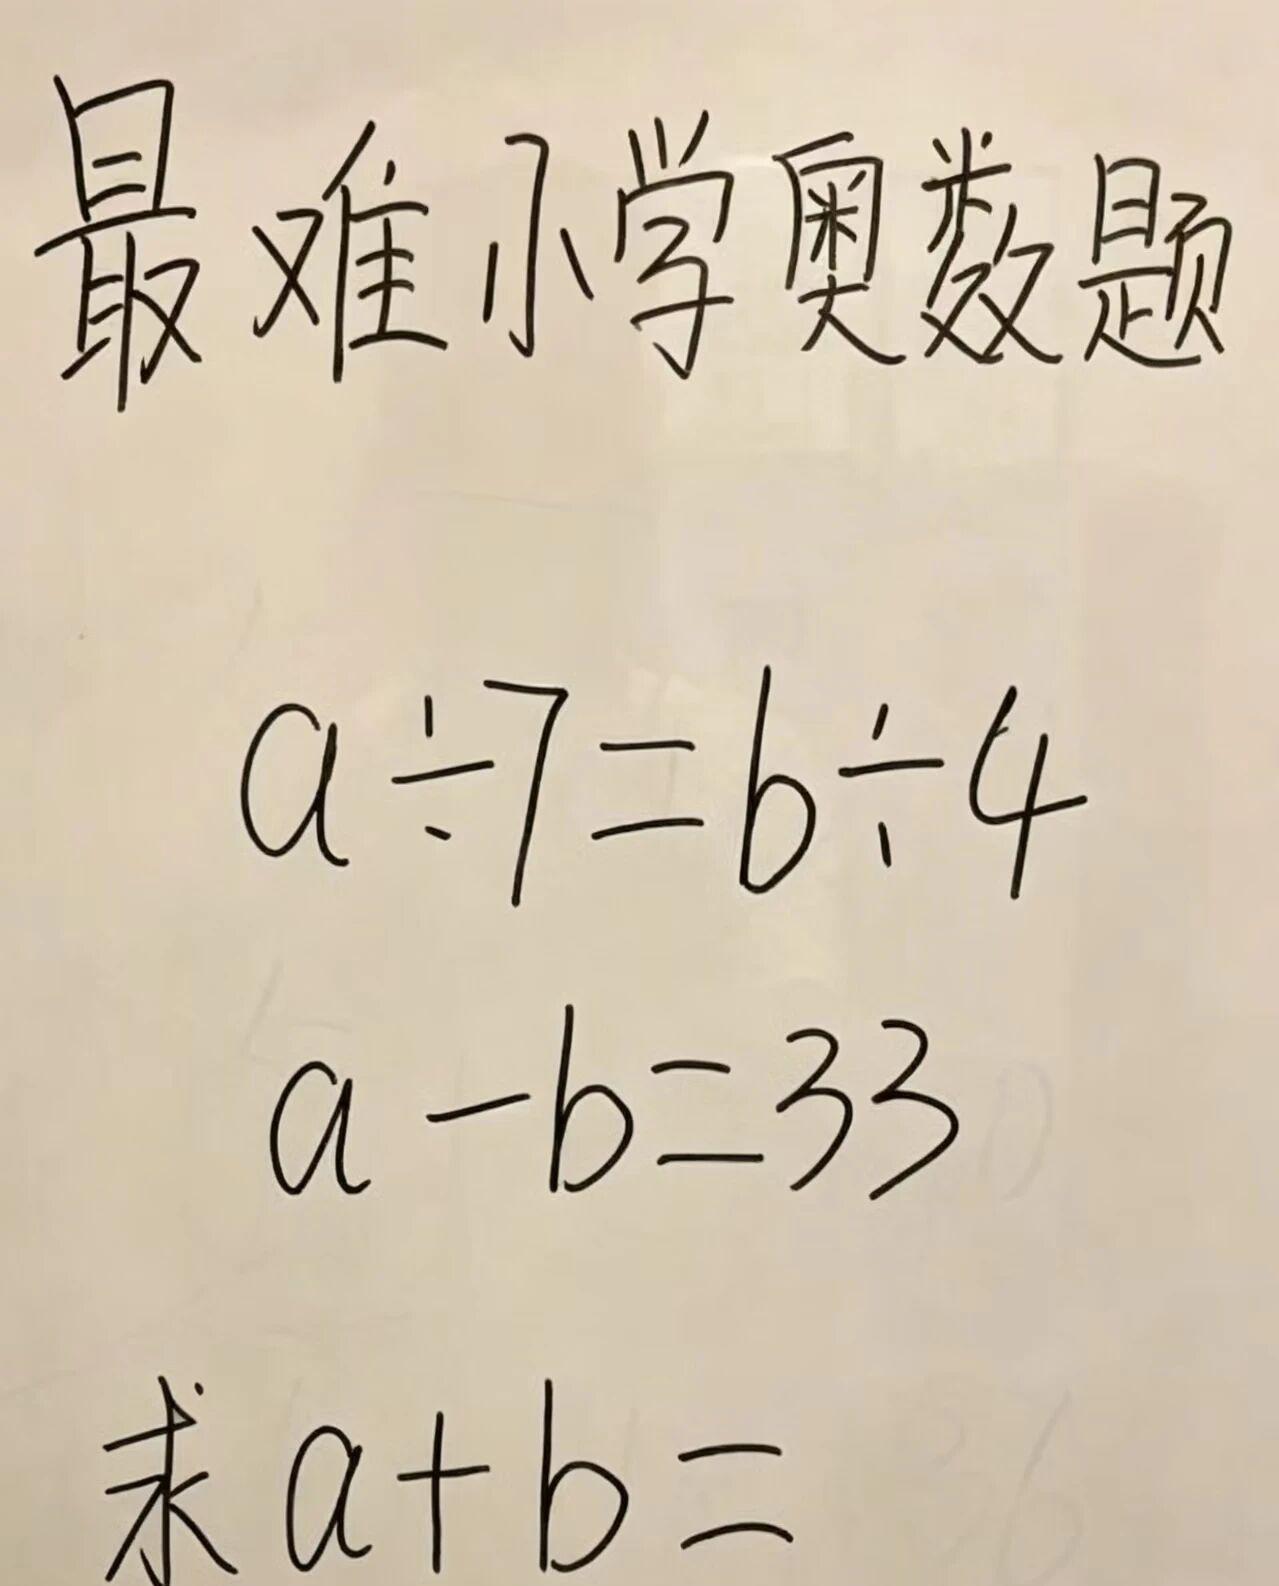 最难小学奥数题
a÷7=b÷4
a-b=33
求a+b=